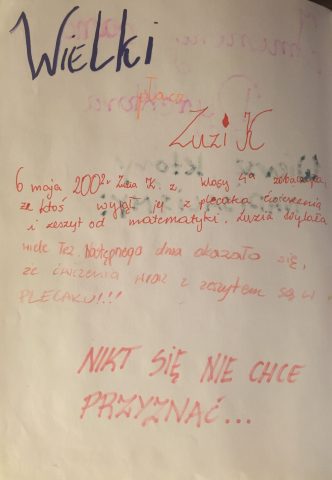 WIELKI
płacz
Zuzi K
6 maja 2002r Zuzia K. z, klasy 4a zobaczyła,
że ktoś wyjął jej z plecaka ćwiczenia
i zeszyt od matematyki. Zuzia wylała
wiele łez. Następnego dnia okazało się,
że ćwiczenia wraz z zeszytem są w
PLECAKU!!!
NIKT SIĘ NIE CHCE
PRZYZNAĆ...